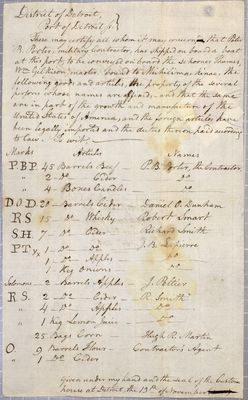 District of Detroit,
Port of Detroit, } S
These may certify all whom it may concern, that Peter
B. Porter, military Contractor, has shipped on board a boat
at this port, to be conveyed on board the schooner Thames,
Wm Gilkison master, bound to Michilimackinac, the
following goods and articles, the property of the several
persons whose names are affixed, and that the same
are in part of the growth and manufacture of the
United States of America, and the foreign articles have
been legally imported and the duties thereon paid according
to law. To wit,
Marks Articles Names
P B P. 45 Barrels Beef P. B. Porter, the Contractor
" 2 Do Cider Do
" 4 Boxes Candles Do
D. O D 20 Barrels Cider Daniel O. Dunham
R S 15 Do Whisky Robert Smart
S. H. 7 Do Cider Richard Smith
P T 1 Do Do J. B. Lapierre
" 1 Do Apples Do
1 Keg Onions Do
2 Barrels Apples J. Peltier
R S. 2 Do Cider R. Smith
" 4 Do Apples Do
" 1 Keg Lemon Juice Do
25 Bags Corn Hugh R. Martin
O. 9 Barrels Flour Contractor's Agent
1 Do Cider
Given under my hand and the seal of the Custom
house at Detroit, the 13th of November